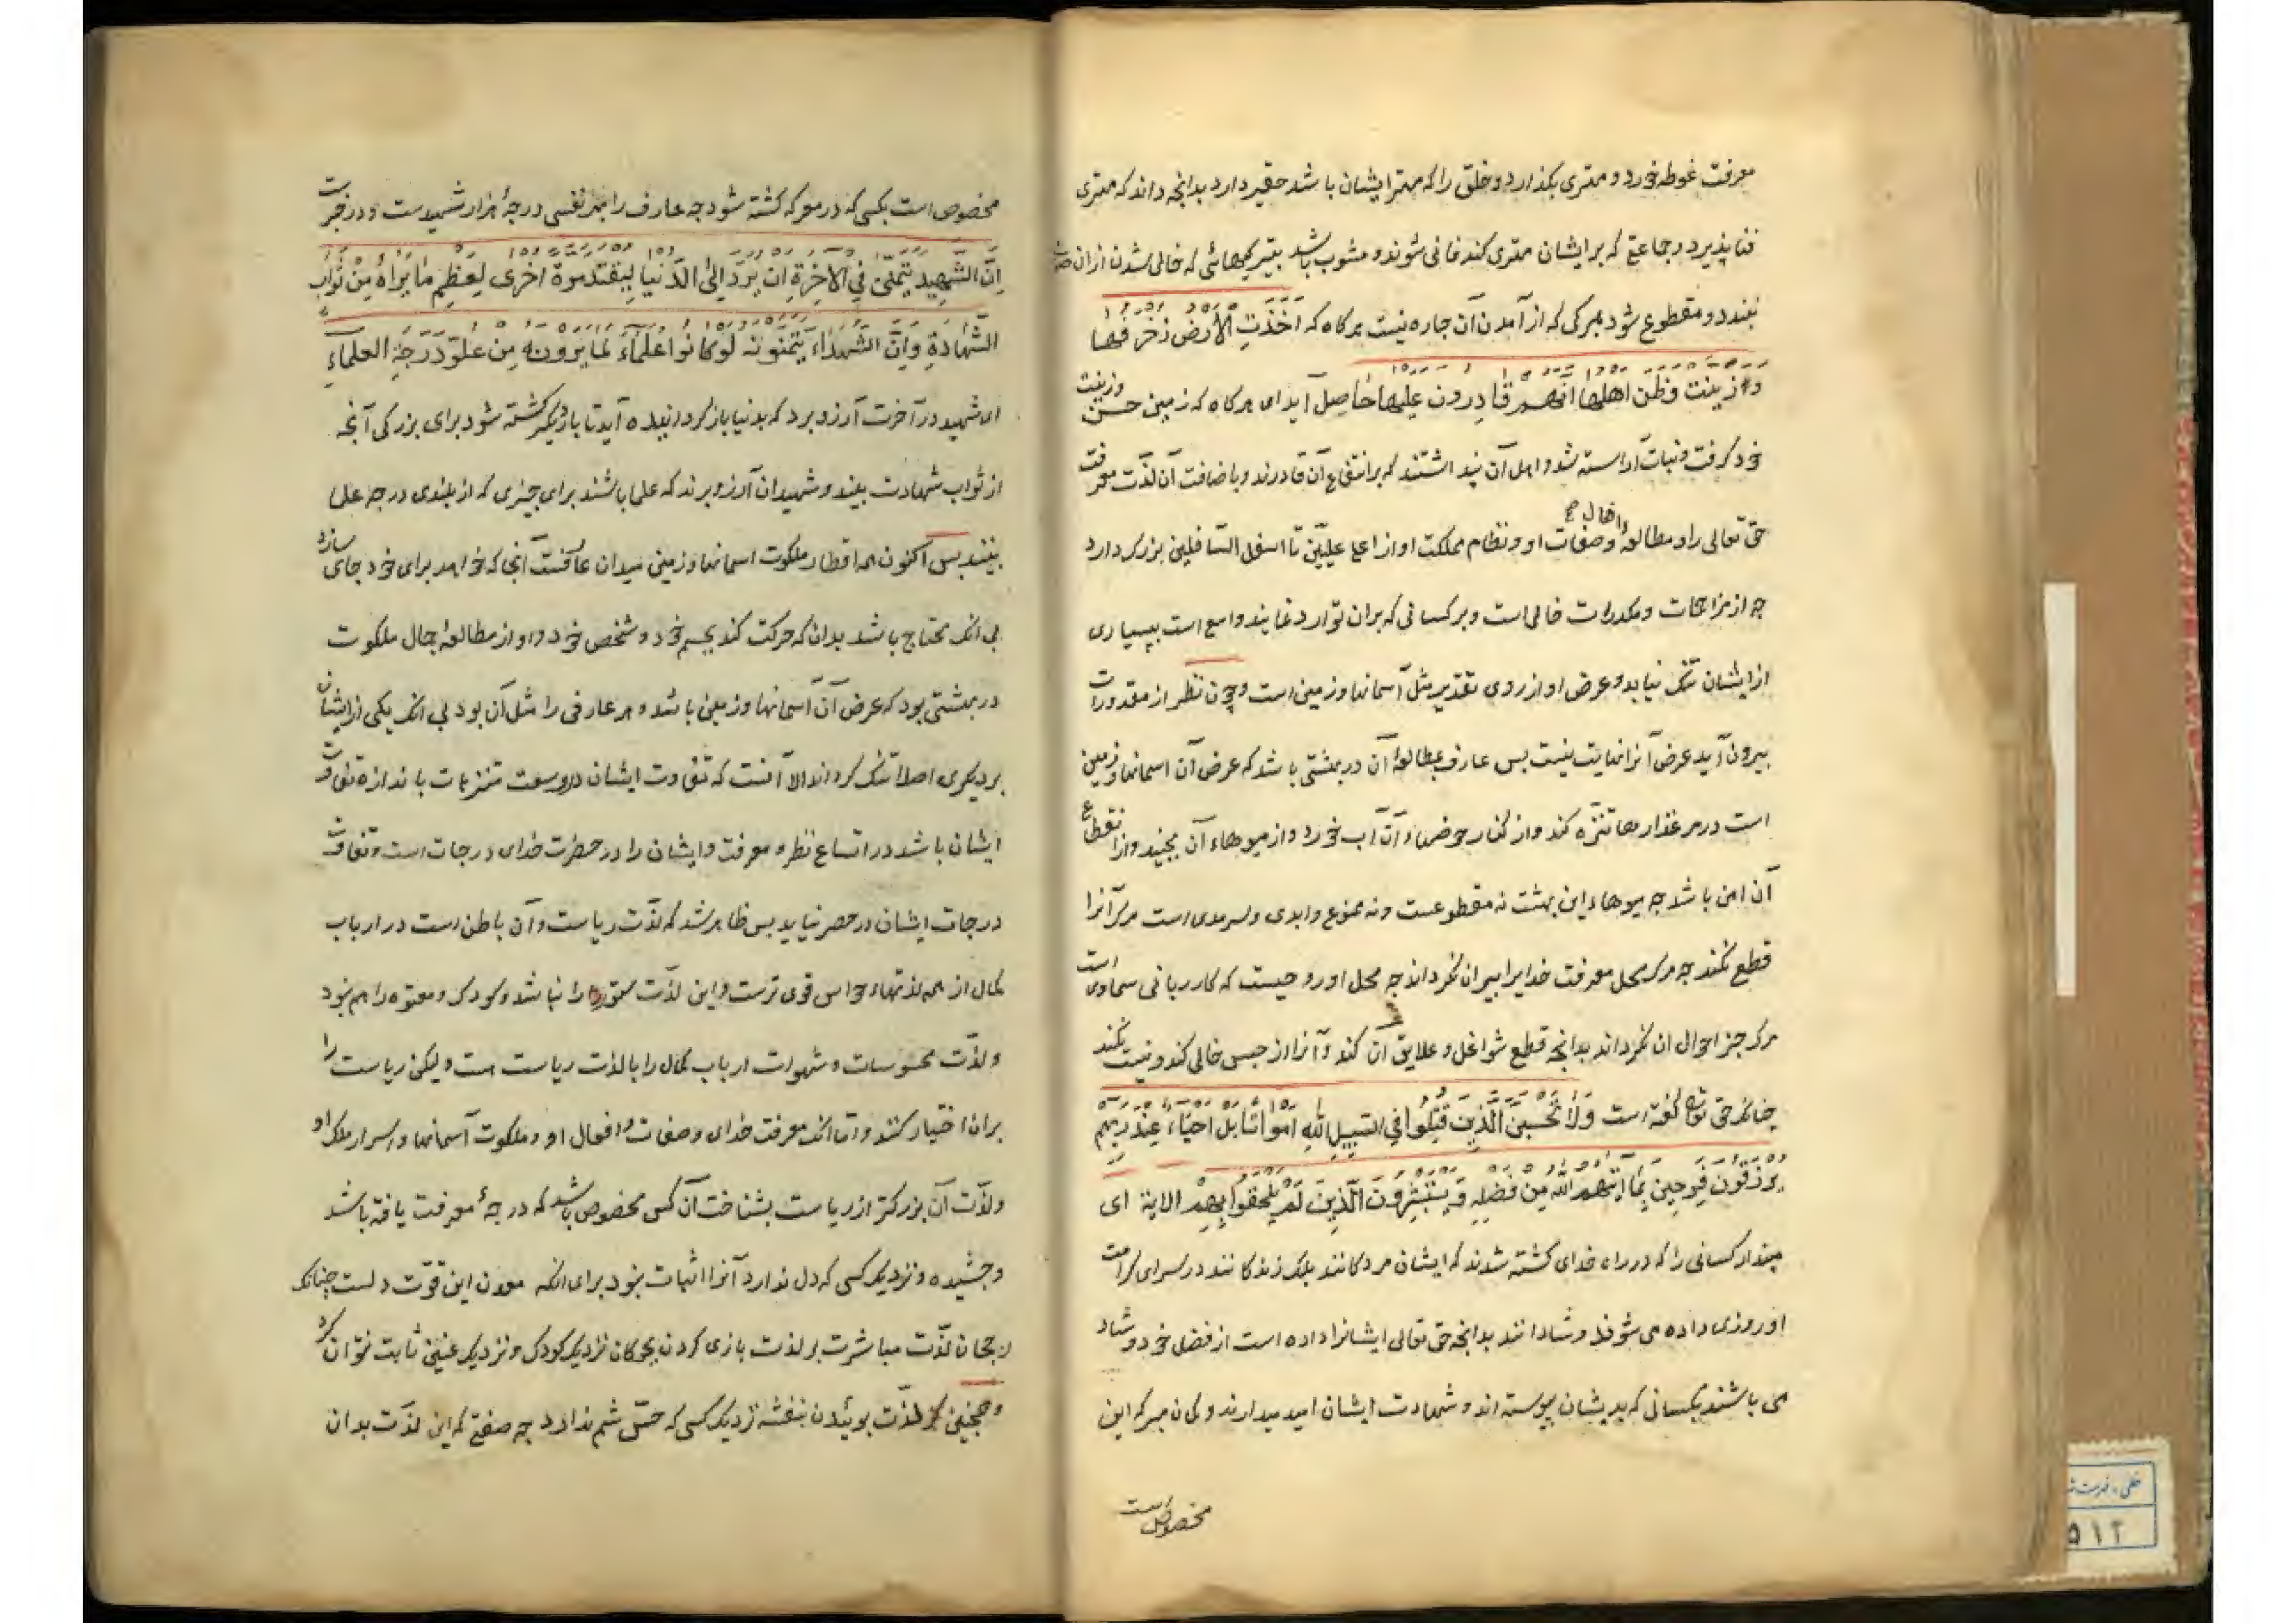 معرفت غوطه خورد و مهتری بکذارد و خلق را که مهتر ایشان باشد حقیر دارد بدانچه داند که مهتری
فنا پذیرد و جماعتی که بر ایشان مهتری کند فانی شوند و مشوب باشد بتیرکیهائی که خالی شدن ازان
نبندد و مقطوع شود بمرکی که از آمدن آن چاره نیست هرکاه که اَخَذَتِ الْأَرضُ زُخْرُفَهَا
وازینت وظن اهلها انهم قادرون علیها حاصل آید ای هرکاه که زمین حسن وزینت
خود کرفت و نبات آراسته شد و اهل آن پنداشتند که بر انتفاع آن قادرند و باضافت آن لذت معرفت
حق تعالی را و مطالعه وصفات وافعال او و نظام مملکت او از اعلی علیین تا اسفل السافلین بزرک دارد
چه از مزاحمات و مکدرات خالی است و بر کسانی که بران توارد نمایند واسع است ببسیاری
از ایشان تنک نیاید و عرض او از روی تقدیر مثل آسمانها و زمین است و چون نظر از مقدورات
بیرون آید عرض آنرا نهایت نیست بس عارف بمطالعهٔ آن در بهشتی باشد که عرض آن اسمانها و زمین
است در مرغزارها تنزه کند و از کنار حوضهاء آن آب خورد و از میوهاء آن بچیند و از انقطاع
آن امن باشد چه میوهاء این بهشت نه مقطوعست و نه ممنوع و ابدی و سرمدی است مرک آنرا
قطع نکند چه مرک محل معرفت خدایرا بیران نکرداند چه محل او روحیست که کار ربانی سماوی است
مرک جز احوال ان نکرداند بدانچه قطع شواغل و علایق آن کند و آنرا از حبس خالی کند و نیست نکند
چنانکه حق تعالی کفته است وَلَا تَحْسَبَنَّ الَّذِینَ قُتِلُوا فِی السَبِیلِ للهِ اَمْوَاتًا بَلْ اَحْیَاءٌ عِنْدَ رَبِّهِمْ
یُرْزَقُونَ فَرِحِینَ بِمَا اٰتٰیهُمُ اللهُ مِنْ فَضْلِهِ وَیَسْتَبْشِرُونَ الَّذِینَ لَمْ یَلْحَقُوا بِهِمْ الایة ای
مپندار کسانی را که در راه خدای کشته شدند که ایشان مردکانند بلک زندکانند در سرای کرامت
او روزی داده می شوند و شادانند بدانچه حق تعالی ایشانرا داده است از فضل خود و شاد
می باشند بکسانی که بدیشان پیوسته اند و شهادت ایشان امید میدارند و کمان مبر که این
مخصوص است
مخصوص است بکسی که در معرکه کشته شود چه عارف را بهر نفسی درجهٔ هزار شهیدست و در خبرت
اِنَّ الشَّهِیدَ یَتَمَنّٰی فِی الْاٰخِرَةِ اَنْ یُرَدَّ اِلَی الدُّنْیَا لِیُقْتَلَ مَرَّةً اُخْرٰی لِعِظَمِ مَا یَرَاهُ مِنْ ثَوَابِ
الشَّهَادَةِ وَاِنَّ الشُّهَدَاءَ یَتَمَنَّونَ لَو کَانُوا عُلَمَاءَ لِمَا یَرَونَهُ مِنْ عُلُوِّ دَرَجَةِ العُلَمَاءِ
ای شهید در آخرت آرزو برد که بدنیا باز کردانیده آید تا بار دیکر کشته شود برای بزرکی آنچه
از ثواب شهادت بیند و شهیدان آرزو برند که علما باشند برای چیزی که از بلندی درجه علما
بینند بس اکنون همه اقطار ملکوت اسمانها و زمین میدان عارفست آنجا که خواهد برای خود جای سازد
بی انک محتاج باشد بدان که حرکت کند بجسم خود و شخص خود و او از مطالعهٔ جمال ملکوت
در بهشتی بود که عرض آن آسمانها و زمین باشد و هر عارفی را مثل آن بود بی انک یکی از ایشان
بر دیکری اصلا تنک کرداند الا آنست که تفاوت ایشان در وسعت متنزهات باندازه تفاوت
ایشان باشد در اتساع نظر و معرفت و ایشان را در حضرت خدای درجات است و تفاوت
درجات ایشان در حصر نیاید بس ظاهر شد که لذت ریاست و آن باطن است در ارباب
کمال از همه لذتهاء حواس قوی ترست و این لذت ستور را نباشد و کودک و معتوه را هم نبود
و لذت محسوسات و شهوات ارباب کمال را با لذت ریاست هست ولیکن ریاست را
بران اختیار کنند و اما انک معرفت خدای و صفات و افعال او و ملکوت آسمانها و اسرار ملک او
و لذت آن بزرکتر از ریاست بشناخت آن کس مخصوص باشد که درجهٔ معرفت یافته باشد
و چشیده و نزدیک کسی که دل ندارد آنرا اثبات نبود برای انکه معدن این قوت دلست چنانک
رجحان لذت مباشرت بر لذت بازی کردن بچوکان نزدیک کودک و نزدیک عنین ثابت نتوان کرد
و همچنین لذت بوئیدن بنفشه نزدیک کسی که حس شم ندارد چه صفتی که این لذت بدان
۵۱۲